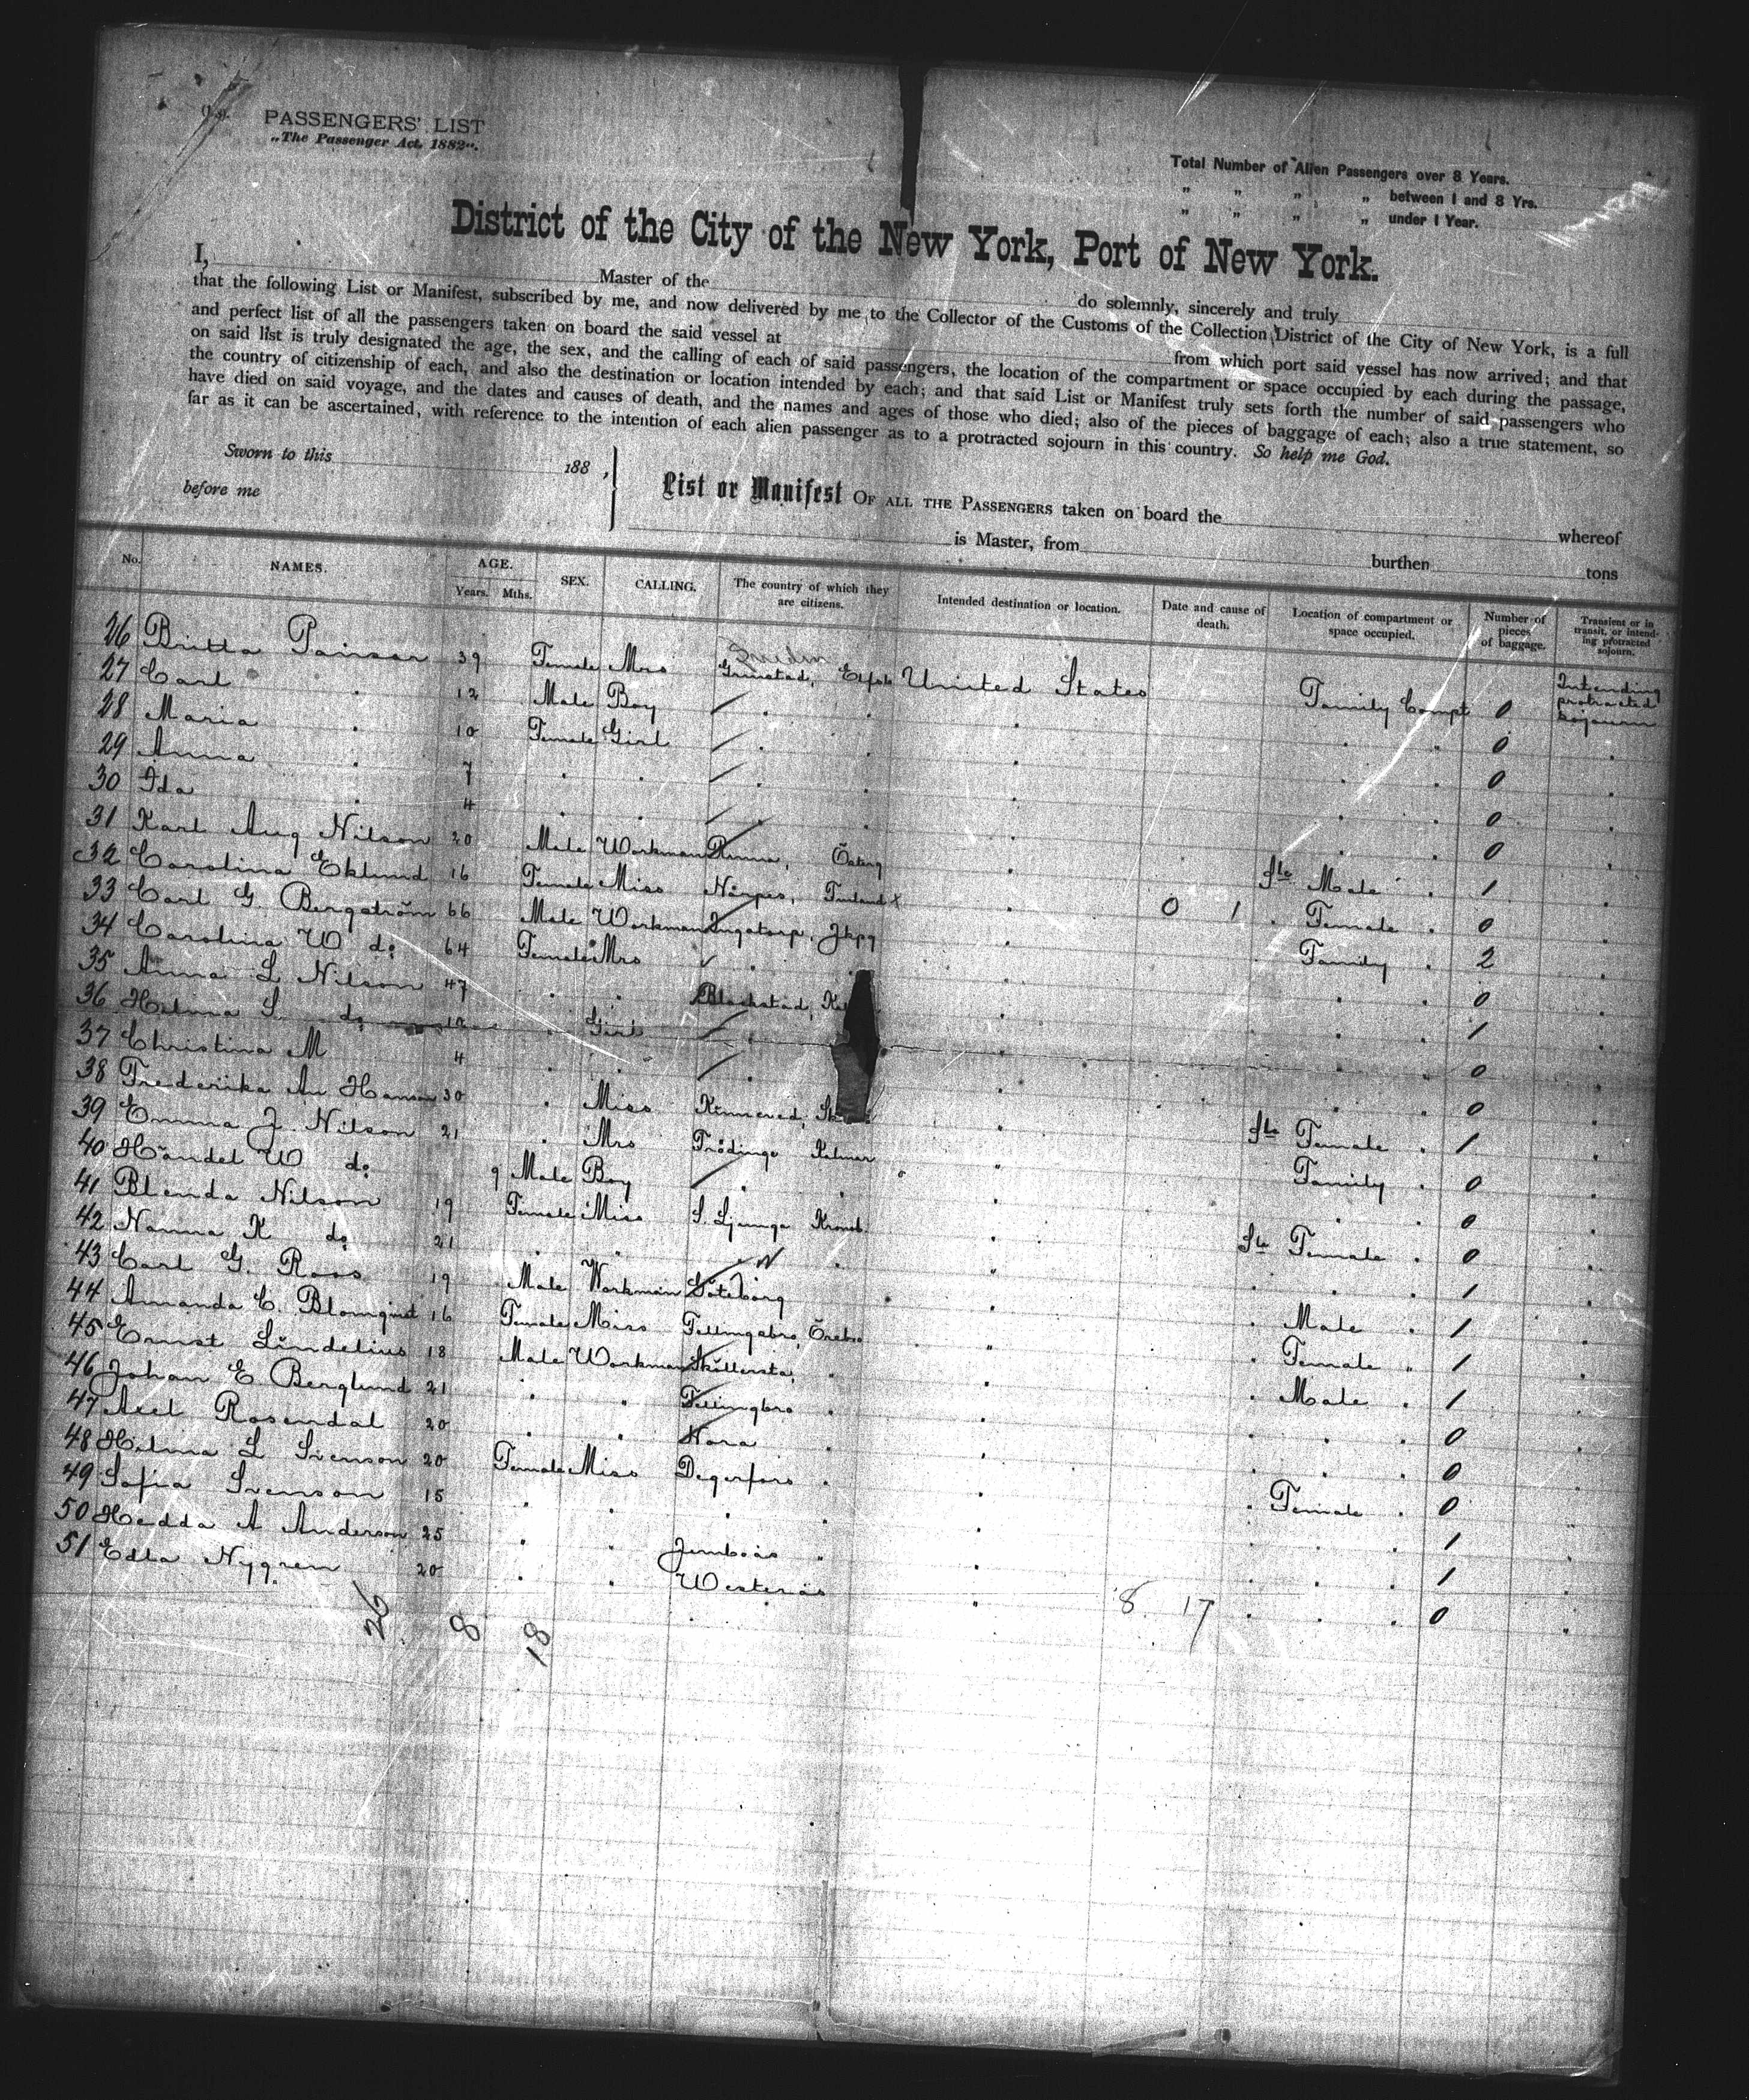 PASSENGERS' LIST
„The Passenger Act, 1882".
Total Number of Alien Passengers over 8 Years.
„ „ „ „ between 1 and 8 Yrs.
„ „ „ „ under 1 Year.
District of the City of the New York, Port of New York.
I, Master of the do solemnly, sincerely and truly
that the following List or Manifest, subscribed by me, and now delivered by me to the Collector of the Customs of the Collection District of the City of New York, is a full
and perfect list of all the passengers taken on board the said vessel at from which port said vessel has now arrived; and that
on said list is truly designated the age, the sex, and the calling of each of said passengers, the location of the compartment or space occupied by each during the passage,
the country of citizenship of each, and also the destination or location intended by each; and that said List or Manifest truly sets forth the number of said passengers who
have died on said voyage, and the dates and causes of death, and the names and ages of those who died; also of the pieces of baggage of each; also a true statement, so
far as it can be ascertained, with reference to the intention of each alien passenger as to a protracted sojourn in this country. So help me God.
Sworn to this 188 ,
before me
List or Manifest OF ALL THE PASSENGERS taken on board the whereof
is Master, from burthen tons
No. NAMES. AGE. Years. Mths. SEX. CALLING. The country of which they are citizens. Intended destination or location. Date and cause of death. Location of compartment or space occupied. Number of pieces of baggage. Transient or in transit, or intending protracted sojourn.
26 Britta 39 Female Mrs Sweden United States Family Compt 0 Intending protracted sojourn
27 Carl 12 Male Boy 0
28 Maria 10 Female Girl 0
29 Anna 7 0
30 Ida 4 0
31 Karl Aug Nilson 20 Male Workman Österg Ste Male 1
32 Carolina Eklund 16 Female Miss Närpes, Finland x 0 1 Female 0
33 Carl G. Bergström 66 Male Workman Ingatorp, Jkpg Family 2
34 Carolina W do 64 Female Mrs 0
35 Anna L Nilson 47 Blackstad, 1
36 Helma S. do 12 Girl 0
37 Christina M 4 0
38 Frederika An Hanson 30 Miss Kinneved, Ste Female 1
39 Emma J. Nilson 21 Mrs Frödinge Kalmar Family 0
40 Händel W do 9 Male Boy 0
41 Blenda Nilson 19 Female Miss S. Ljunga Kronob. Ste Female 0
42 Nanna K do 21 1
43 Carl G. Roos 19 Male Workman Göteborg Male 1
44 Amanda C. Blomquist 16 Female Miss Fellingsbro, Örebro Female 1
45 Ernst Lindelius 18 Male Workman Sköllersta, Male 1
46 Johan E Berglund 21 Fellingbro 0
47 Axel Rosendal 20 Nora 0
48 Helma L Svenson 20 Female Miss Degerfors Female 0
49 Sofia Svenson 15 1
50 Hedda A Anderson 25 Jernboås 1
51 Edla Nygren 20 Westerås 0
8 17
26 8 18